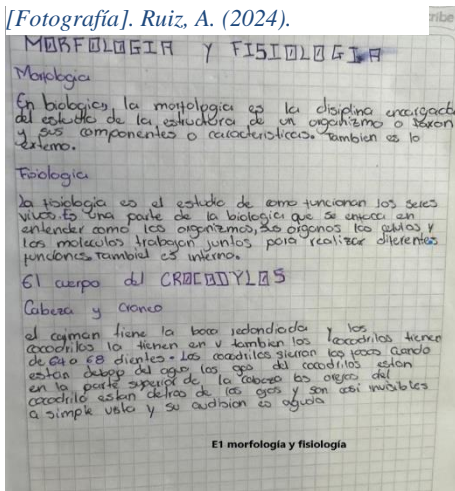 [Fotografía]. Ruiz, A. (2024).
MORFOLOGIA Y FISIOLOGIA
Morfologia
En biologica, la morfologia es la disiplina encargada
del estudio de la estructura de un organizmo o taxon
y sus componentes o caracteristicas. Tambien es lo
externo.
Fisiologia
la fisiologia es el estudio de como funcionan los seres
vivos. Es una parte de la biologia que se enfoca en
entender como los organizmos, sus organos las celulas, y
las moleculas trabajan juntos para realizar diferentes
funciones. Tambien es interno.
El cuerpo del CROCODYLOS
Cabeza y craneo
el cajman tiene la boca redondiada y los
cocodrilos la tienen en v tambien los cocodrilos tienen
de 64 a 68 dientes. Los cocodrilos sierran las fosas cuando
estan debajo del agua, los ojos del cocodrilos estan
en la parte superior de la cabeza las orejas del
cocodrilo estan detras de los ojos y son casi invicibles
a simple vista y su audision es aguda
E1 morfología y fisiología